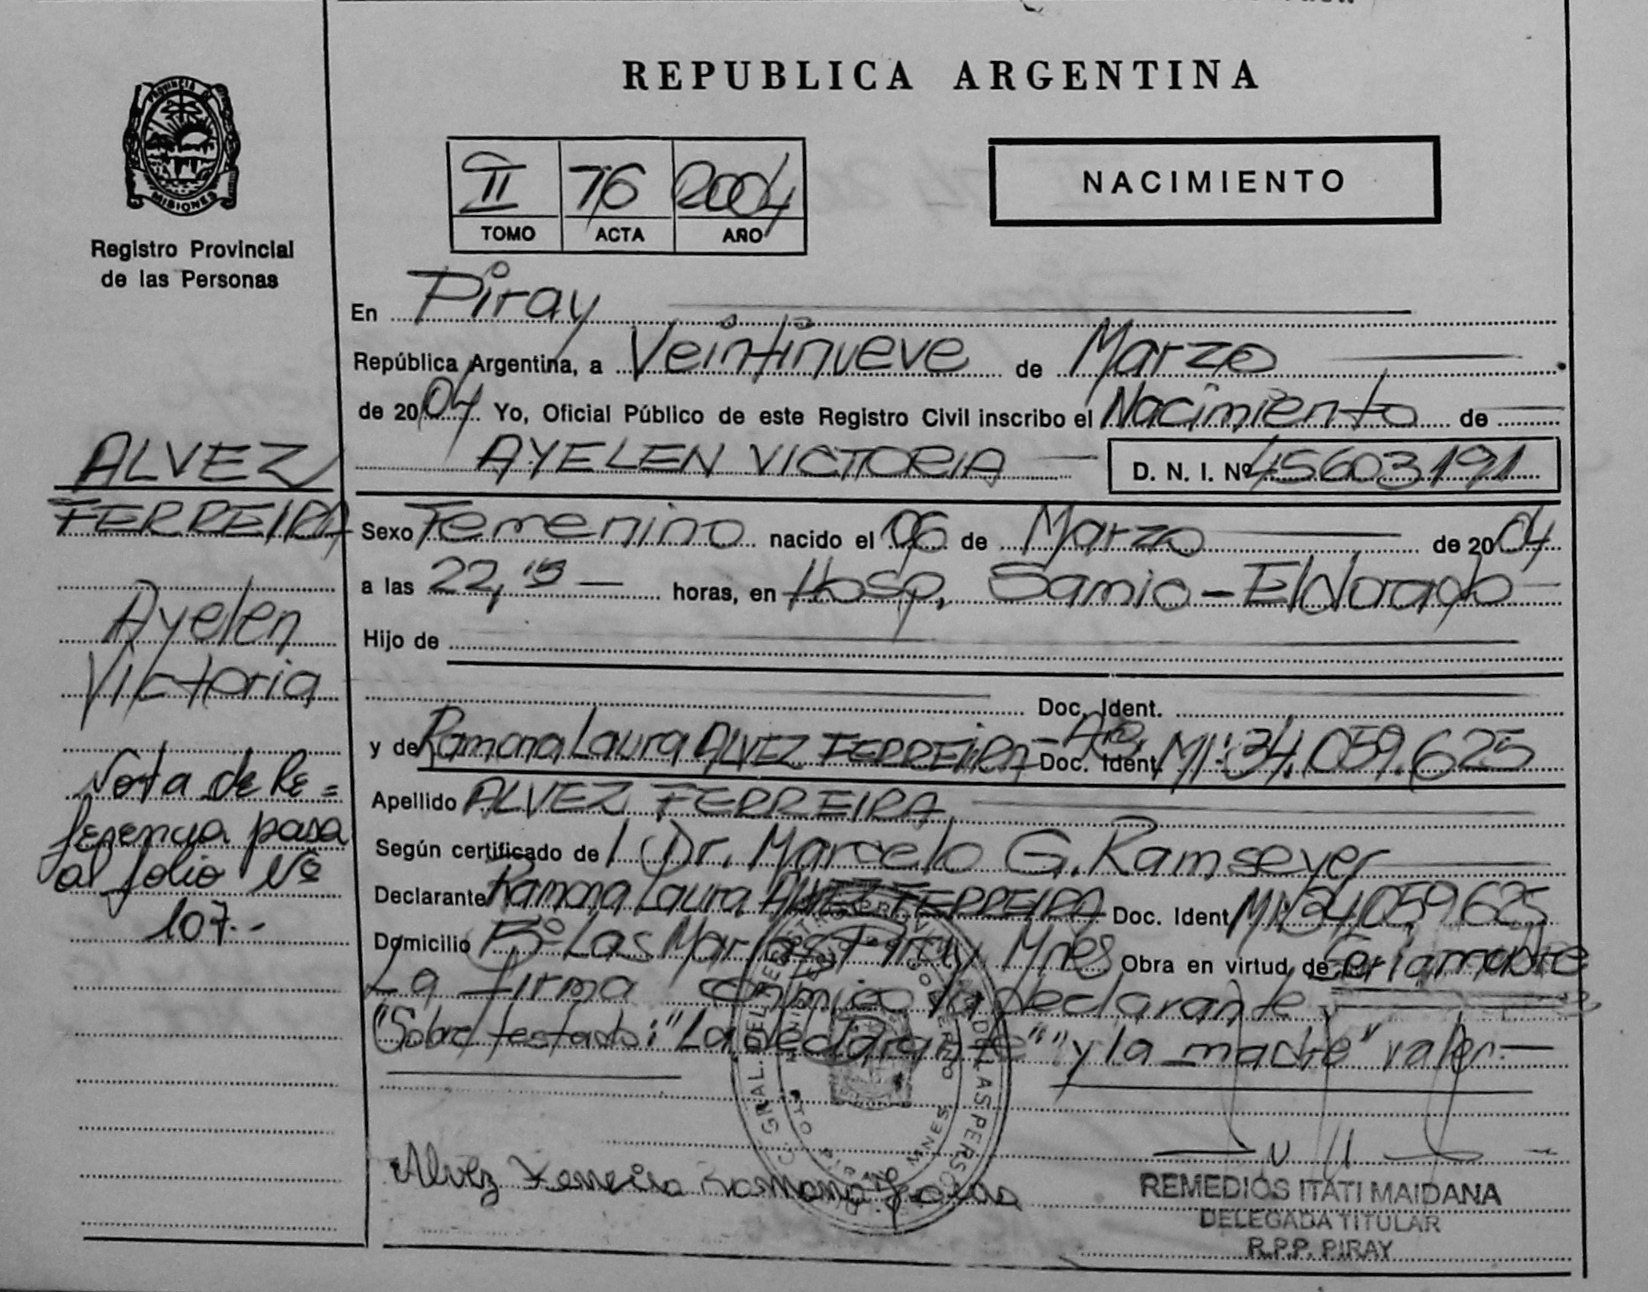 REPUBLICA ARGENTINA
PROVINCIA DE
MISIONES
Registro Provincial
de las Personas
II 76 2004
TOMO ACTA AÑO
NACIMIENTO
En Piray
República Argentina, a Veintinueve de Marzo
de 2004 Yo, Oficial Público de este Registro Civil inscribo el Nacimiento de
AYELEN VICTORIA D. N. I. Nº 45603191
ALVEZ
FERREIRA
Ayelen
Victoria
Nota de Re=
ferencia pasa
al folio Nº
107.-
Sexo Femenino nacido el 06 de Marzo de 2004
a las 22,15 horas, en Hosp. Samic - Eldorado
Hijo de
Doc. Ident.
y de Ramona Laura ALVEZ FERREIRA Doc. Ident. MI: 34.059.625
Apellido ALVEZ FERREIRA
Según certificado de l Dr. Marcelo G. Ramseyer
Declarante Ramona Laura ALVEZ FERREIRA Doc. Ident. MI 34.059.625
Domicilio Bº Las Marias Piray Mnes Obra en virtud de Ser la madre
La firma conmigo la declarante
"Sobre testado: "La declarante" "y la madre" valen.
Alvez Ferreira Ramona Laura
REMEDIOS ITATI MAIDANA
DELEGADA TITULAR
R.P.P. PIRAY